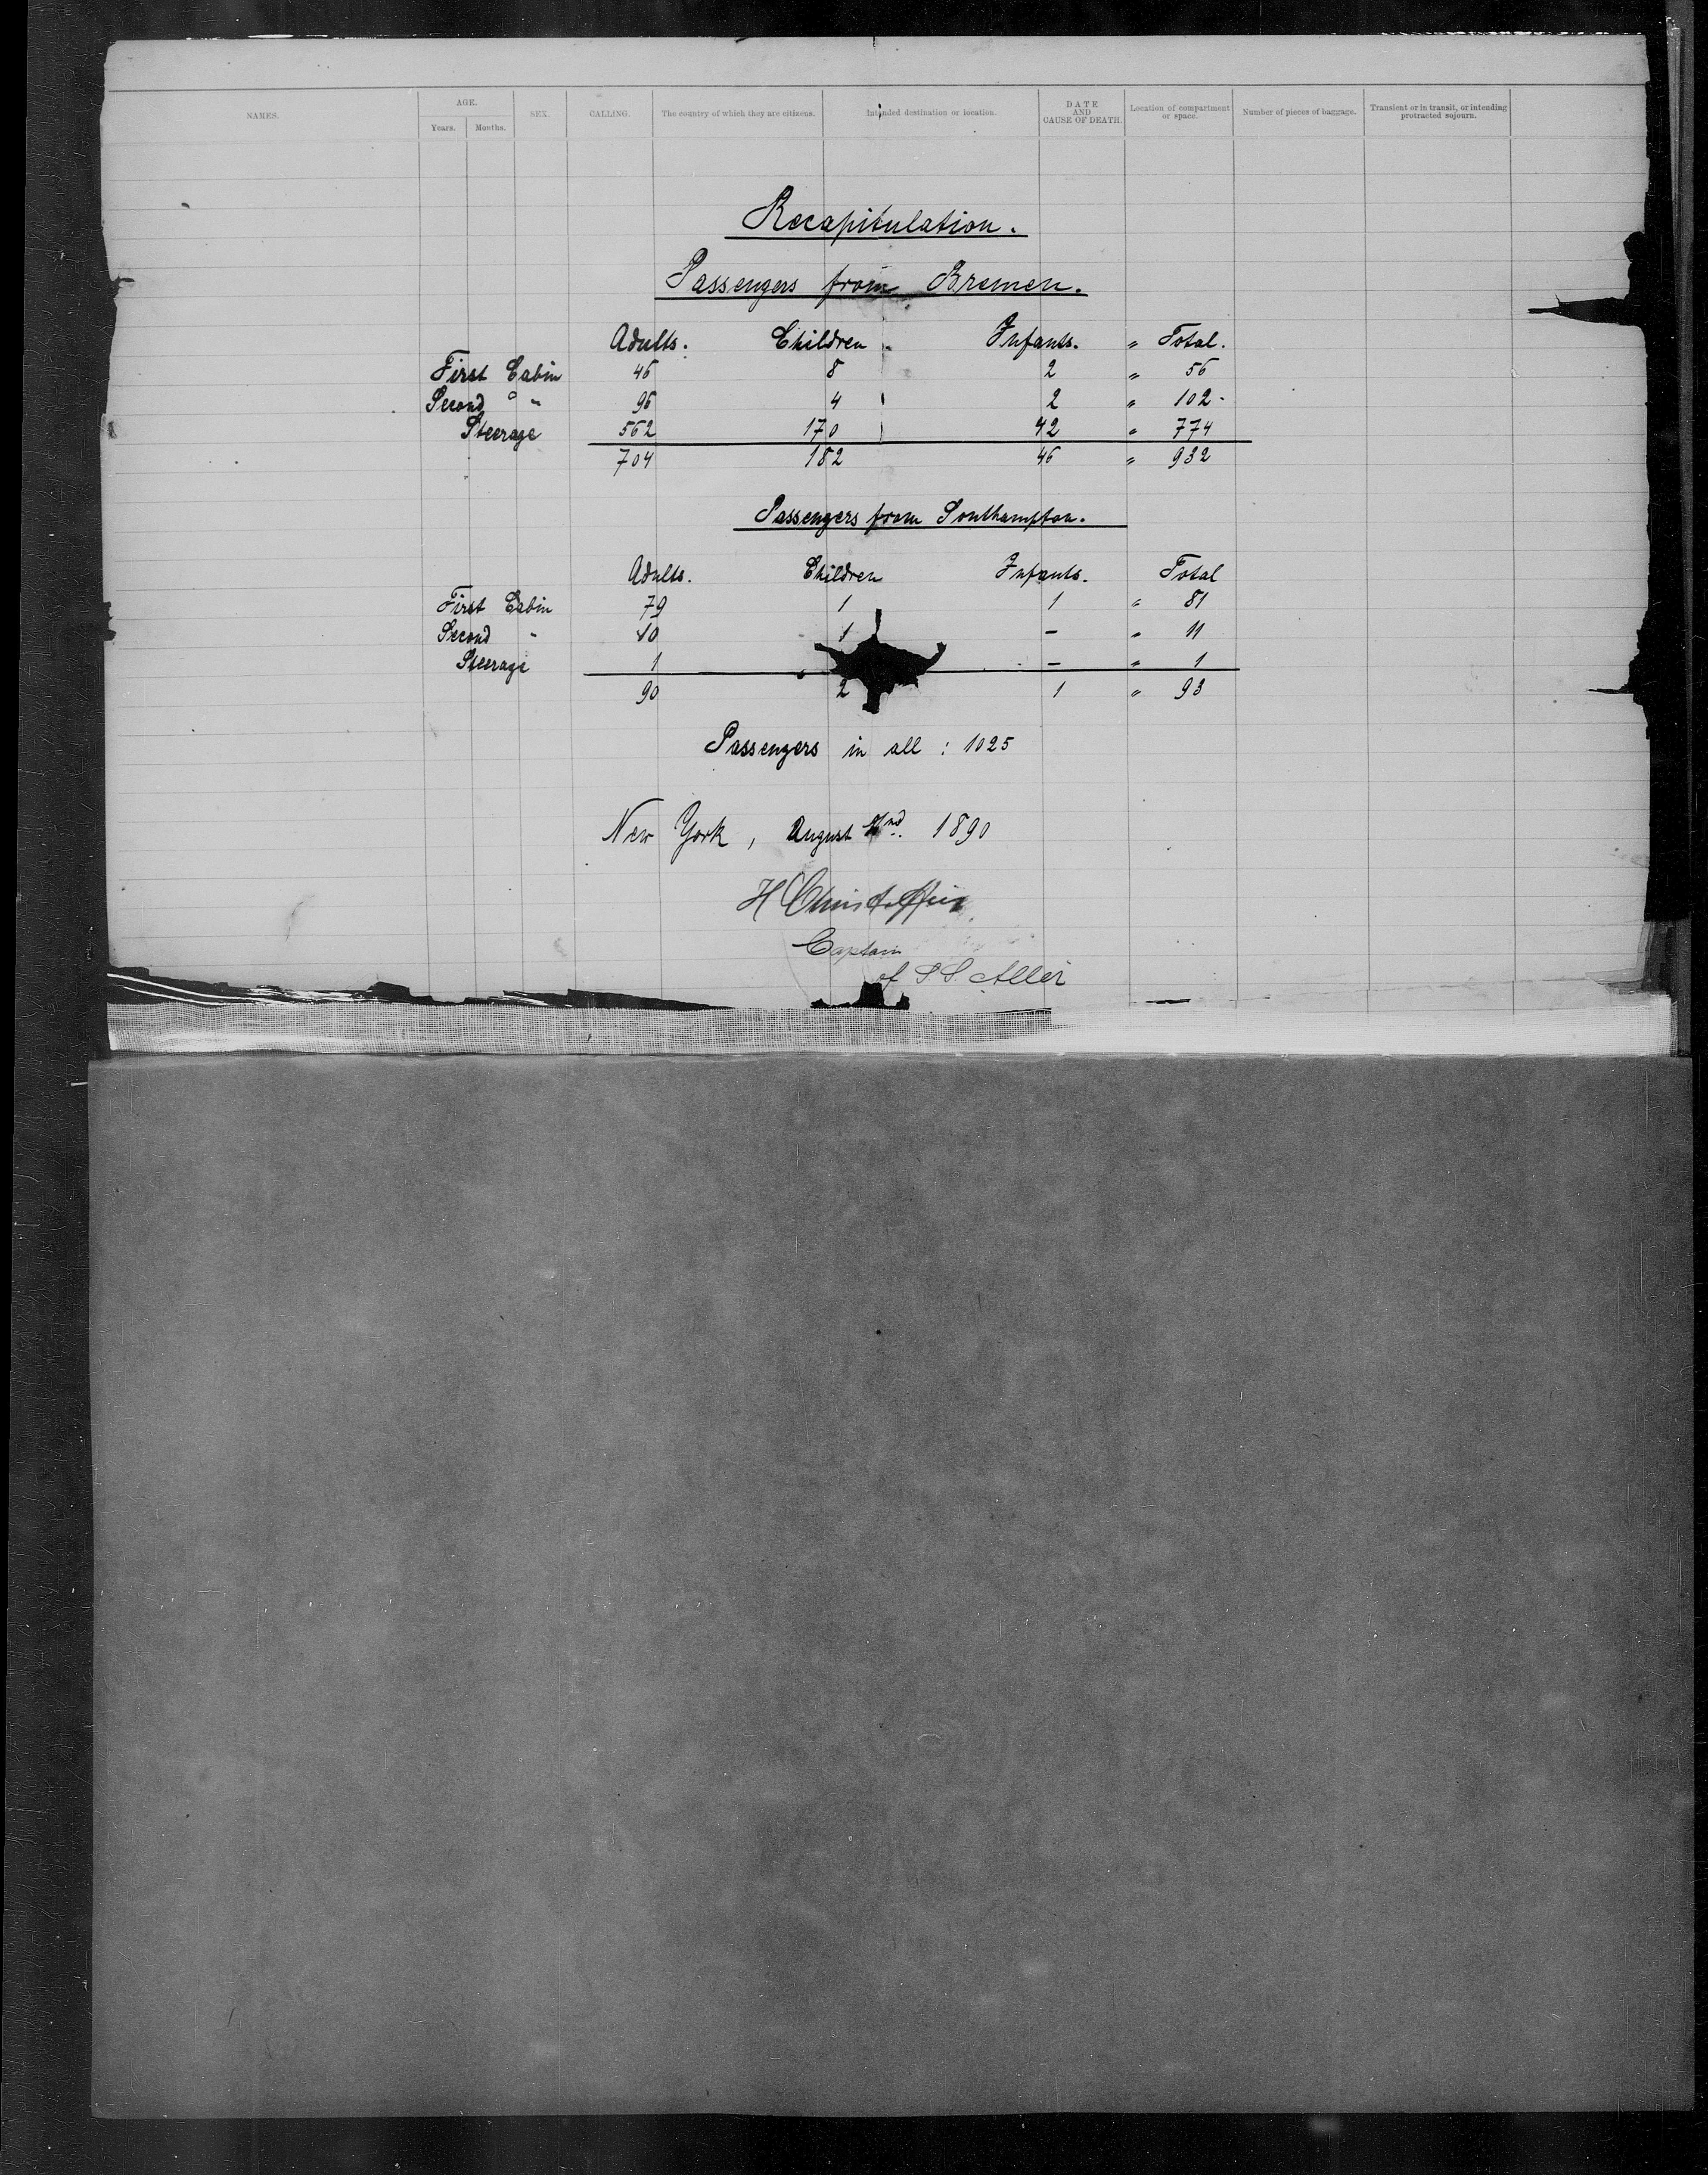 NAMES. AGE. SEX. CALLING. The country of which they are citizens. Intended destination or location. DATE AND CAUSE OF DEATH. Location of compartment or space. Number of pieces of baggage. Transient or in transit, or intending protracted sojourn.
Years. Months.
Recapitulation.
Passengers from Bremen.
Adults. Children. Infants. " Total.
First Cabin 46 8 2 " 56
Second " 96 4 2 " 102
Steerage 562 170 42 " 774
704 182 46 " 932
Passengers from Southampton.
Adults. Children Infants. Total
First Cabin 79 1 1 " 81
Second " 10 1 - " 11
Steerage 1 - " 1
90 2 1 " 93
Passengers in all : 1025
New York, August 1890
H Christoffers
Captain
of S.S. Aller